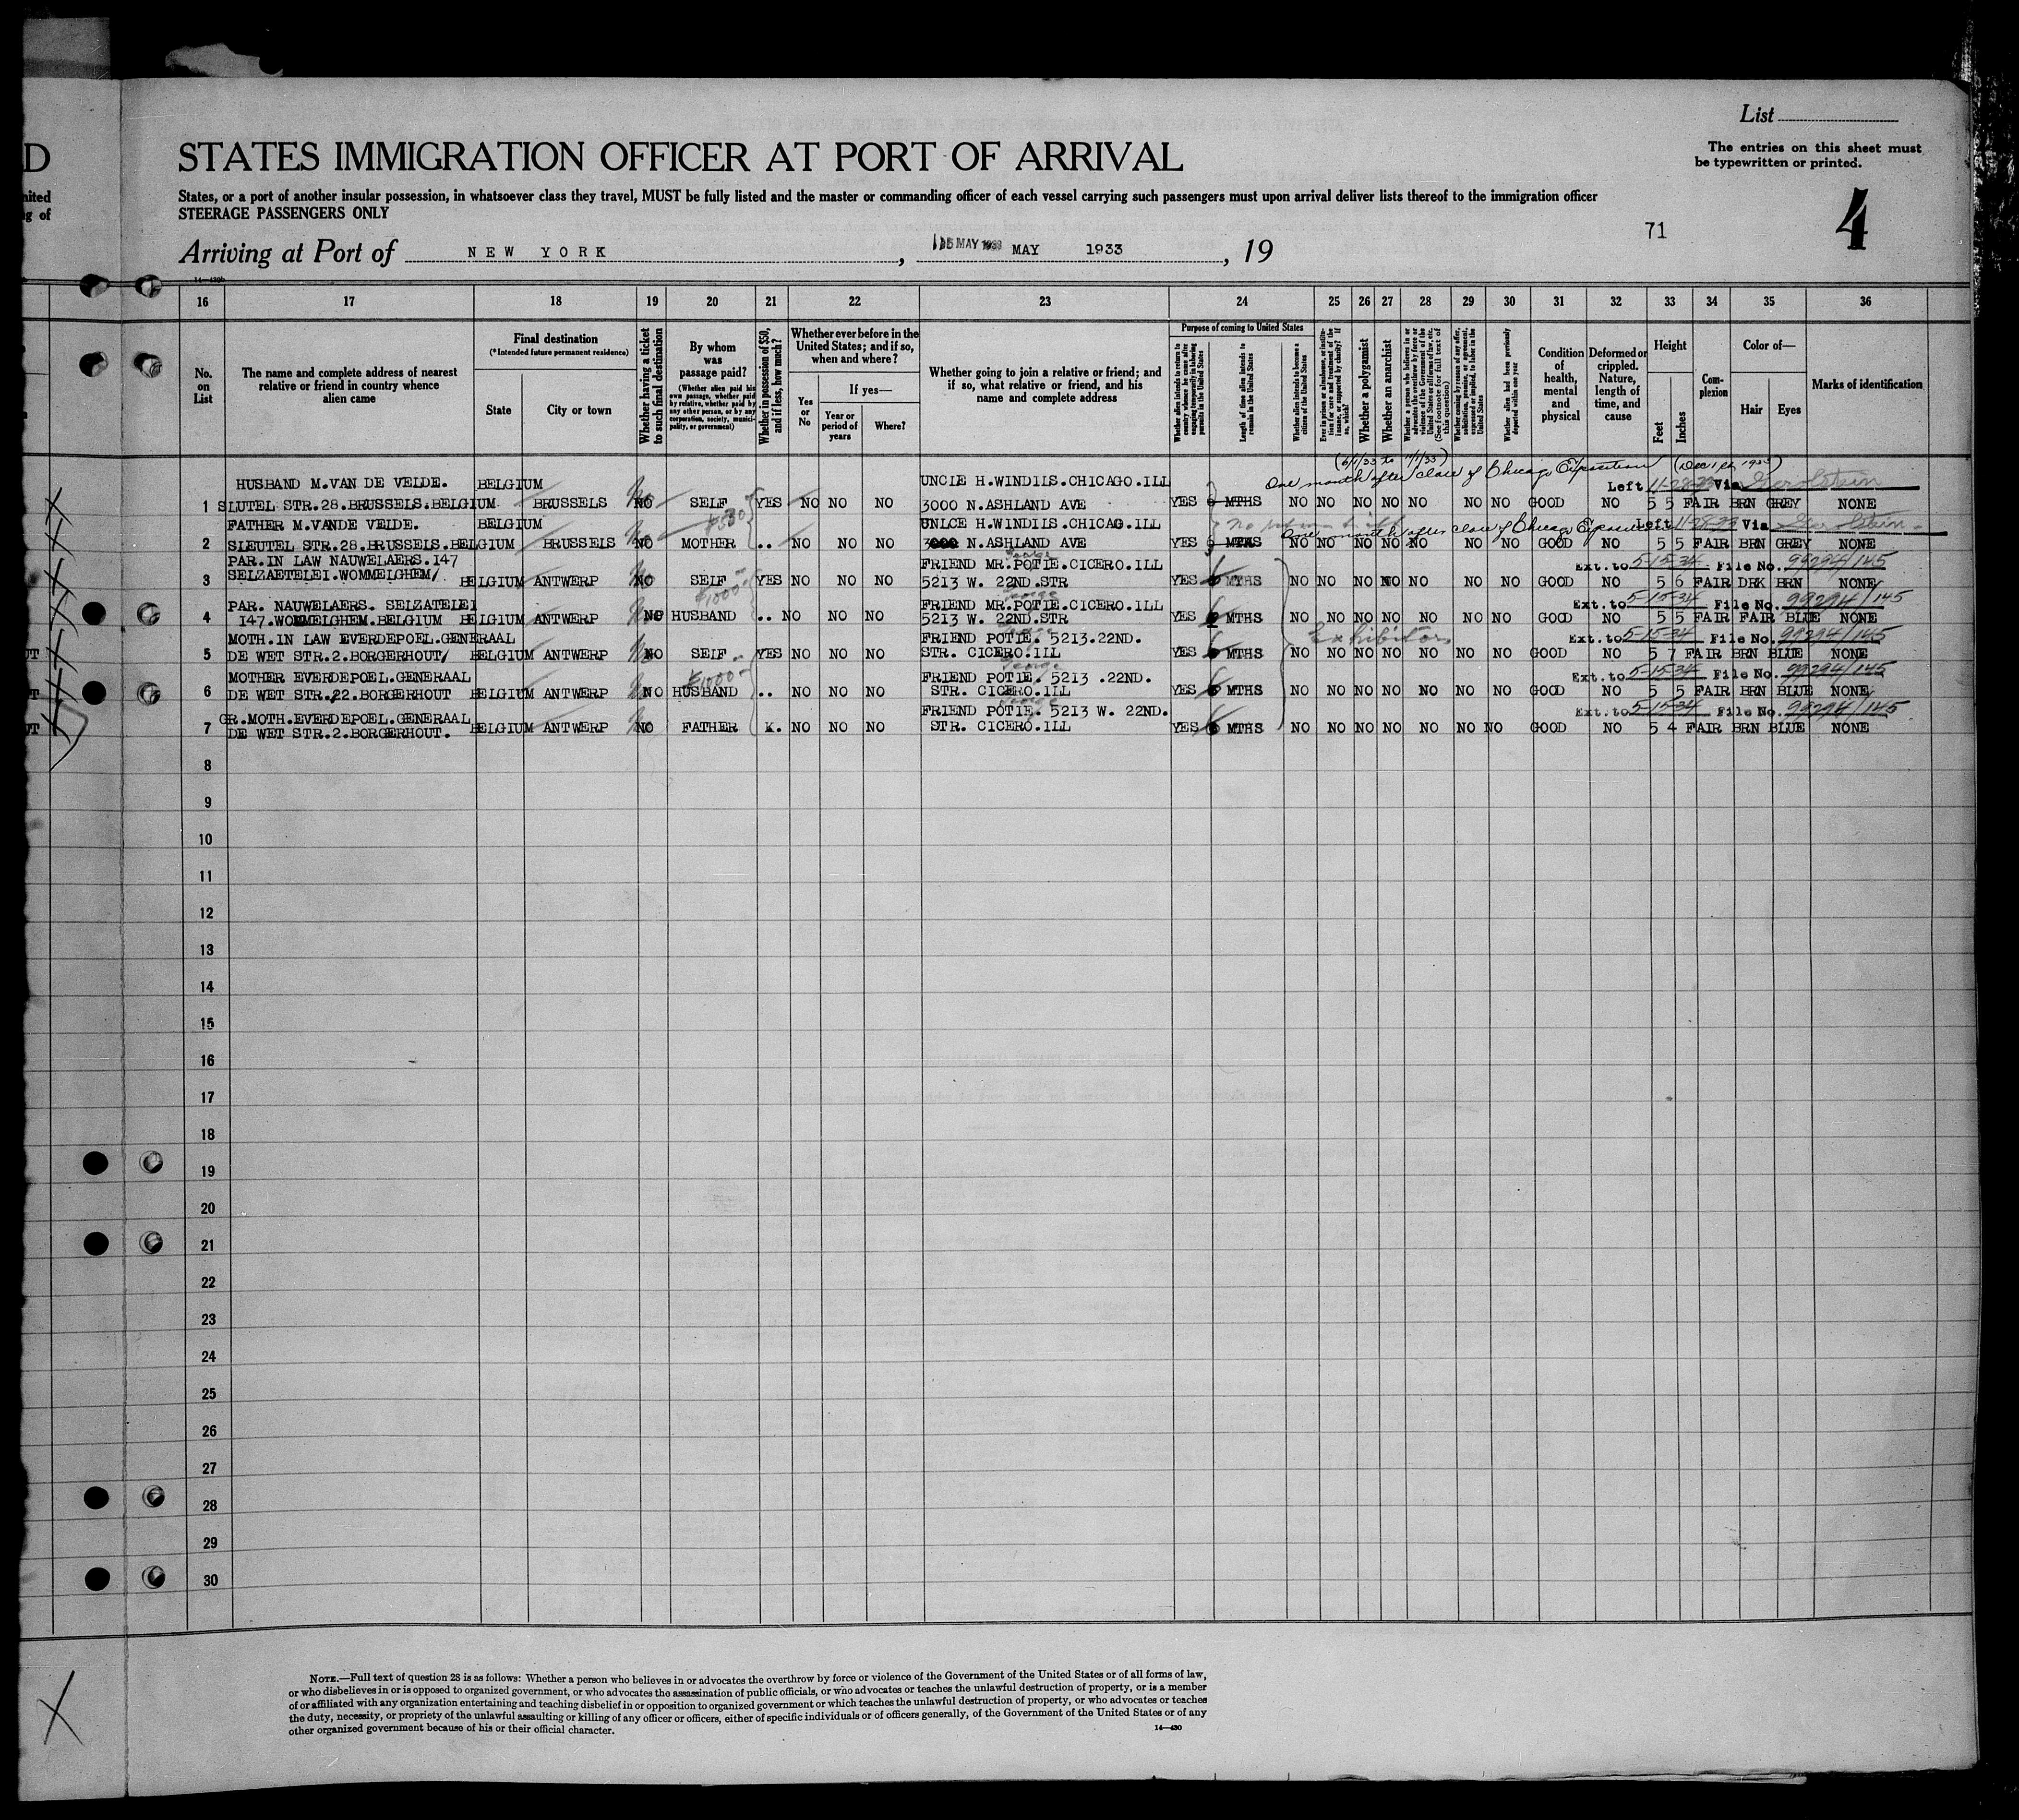 D
nited
g of
List
The entries on this sheet must
be typewritten or printed.
STATES IMMIGRATION OFFICER AT PORT OF ARRIVAL
States, or a port of another insular possession, in whatsoever class they travel, MUST be fully listed and the master or commanding officer of each vessel carrying such passengers must upon arrival deliver lists thereof to the immigration officer
STEERAGE PASSENGERS ONLY
71
4
Arriving at Port of NEW YORK, MAY 1933, 19
16 17 18 19 20 21 22 23 24 25 26 27 28 29 30 31 32 33 34 35 36
No. on List
The name and complete address of nearest relative or friend in country whence alien came
Final destination
(*Intended future permanent residence)
State
City or town
Whether having a ticket to such final destination
By whom was passage paid?
(Whether alien paid his own passage, whether paid by relative, whether paid by any other person, or by any corporation, society, municipality, or government)
Whether in possession of $50, and if less, how much?
Whether ever before in the United States; and if so, when and where?
Yes or No
If yes—
Year or period of years
Where?
Whether going to join a relative or friend; and if so, what relative or friend, and his name and complete address
Purpose of coming to United States
Whether alien intends to return to country whence he came after engaging temporarily in laboring pursuits in the United States
Length of time alien intends to remain in the United States
Whether alien intends to become a citizen of the United States
Ever in prison or almshouse, or institution for care and treatment of the insane, or supported by charity? If so, which?
Whether a polygamist
Whether an anarchist
Whether a person who believes in or advocates the overthrow by force or violence of the Government of the United States or all forms of law, etc. (See footnote for full text of this question)
Whether coming by reason of any offer, solicitation, promise, or agreement, expressed or implied, to labor in the United States
Whether alien had been previously deported within one year
Condition of health, mental and physical
Deformed or crippled. Nature, length of time, and cause
Height
Feet
Inches
Complexion
Color of—
Hair
Eyes
Marks of identification
(6/1/33 to 11/1/33)
One month after close of Chicago Exposition (Dec 1st, 1933)
HUSBAND M.VAN DE VELDE. BELGIUM UNCLE H.WINDILS.CHICAGO.ILL Left 11-28-33 Via Gerolstein
1 SLUTEL STR.28.BRUSSELS.BELGIUM BRUSSELS NO SELF YES NO NO NO 3000 N.ASHLAND AVE YES 6 MTHS NO NO NO NO NO NO NO GOOD NO 5 5 FAIR BRN GREY NONE
$500
FATHER M.VANDE VELDE. BELGIUM UNLCE H.WINDILS.CHICAG.ILL One month after close of Chicago Exposition Left 11-28-33 Via Gerolstein
2 SLEUTEL STR.28.BRUSSELS.BELGIUM BRUSSELS NO MOTHER .. NO NO NO 3000 N.ASHLAND AVE YES MTHS NO NO NO NO NO NO NO GOOD NO 5 5 FAIR BRN GREY NONE
George
PAR.IN LAW NAUWELAERS.147 FRIEND MR.POTIE.CICERO.ILL Ext.to 5-15-34 File No. 99294/145
3 SELZAETELEI.WOMMELGHEM/ BELGIUM ANTWERP NO SELF YES NO NO NO 5213 W. 22ND.STR YES 6 MTHS NO NO NO NO NO NO NO GOOD NO 5 6 FAIR DRK BRN NONE
$1000 George
PAR. NAUWELAERS. SELZATELEI FRIEND MR.POTIE.CICERO.ILL Ext.to 5-15-34 File No. 99294/145
4 147.WOMMELGHEM.BELGIUM BELGIUM ANTWERP NO HUSBAND .. NO NO NO 5213 W. 22ND.STR YES 6 MTHS NO NO NO NO NO NO NO GOOD NO 5 5 FAIR FAIR BLUE NONE
Exhibitors
MOTH.IN LAW EVERDEPOEL.GENERAAL FRIEND POTIE. 5213.22ND. Ext.to 5-15-34 File No. 99294/145
5 DE WET STR.2.BORGERHOUT/ BELGIUM ANTWERP NO SELF YES NO NO NO STR. CICERO.ILL YES 6 MTHS NO NO NO NO NO NO NO GOOD NO 5 7 FAIR BRN BLUE NONE
$1000 George
MOTHER EVERDEPOEL.GENERAAL FRIEND POTIE. 5213 .22ND. Ext.to 5-15-34 File No. 99294/145
6 DE WET STR.22.BORGERHOUT BELGIUM ANTWERP NO HUSBAND .. NO NO NO STR. CICERO.ILL YES 6 MTHS NO NO NO NO NO NO NO GOOD NO 5 5 FAIR BRN BLUE NONE
George
GR.MOTH.EVERDEPOEL.GENERAAL FRIEND POTIE. 5213 W. 22ND. Ext.to 5-15-34 File No. 99294/145
7 DE WET STR.2.BORGERHOUT. BELGIUM ANTWERP NO FATHER K. NO NO NO STR. CICERO.ILL YES 6 MTHS NO NO NO NO NO NO NO GOOD NO 5 4 FAIR BRN BLUE NONE
8
9
10
11
12
13
14
15
16
17
18
19
20
21
22
23
24
25
26
27
28
29
30
NOTE.—Full text of question 28 is as follows: Whether a person who believes in or advocates the overthrow by force or violence of the Government of the United States or of all forms of law,
or who disbelieves in or is opposed to organized government, or who advocates the assassination of public officials, or who advocates or teaches the unlawful destruction of property, or is a member
of or affiliated with any organization entertaining and teaching disbelief in or opposition to organized government or which teaches the unlawful destruction of property, or who advocates or teaches
the duty, necessity, or propriety of the unlawful assaulting or killing of any officer or officers, either of specific individuals or of officers generally, of the Government of the United States or of any
other organized government because of his or their official character.
14—430